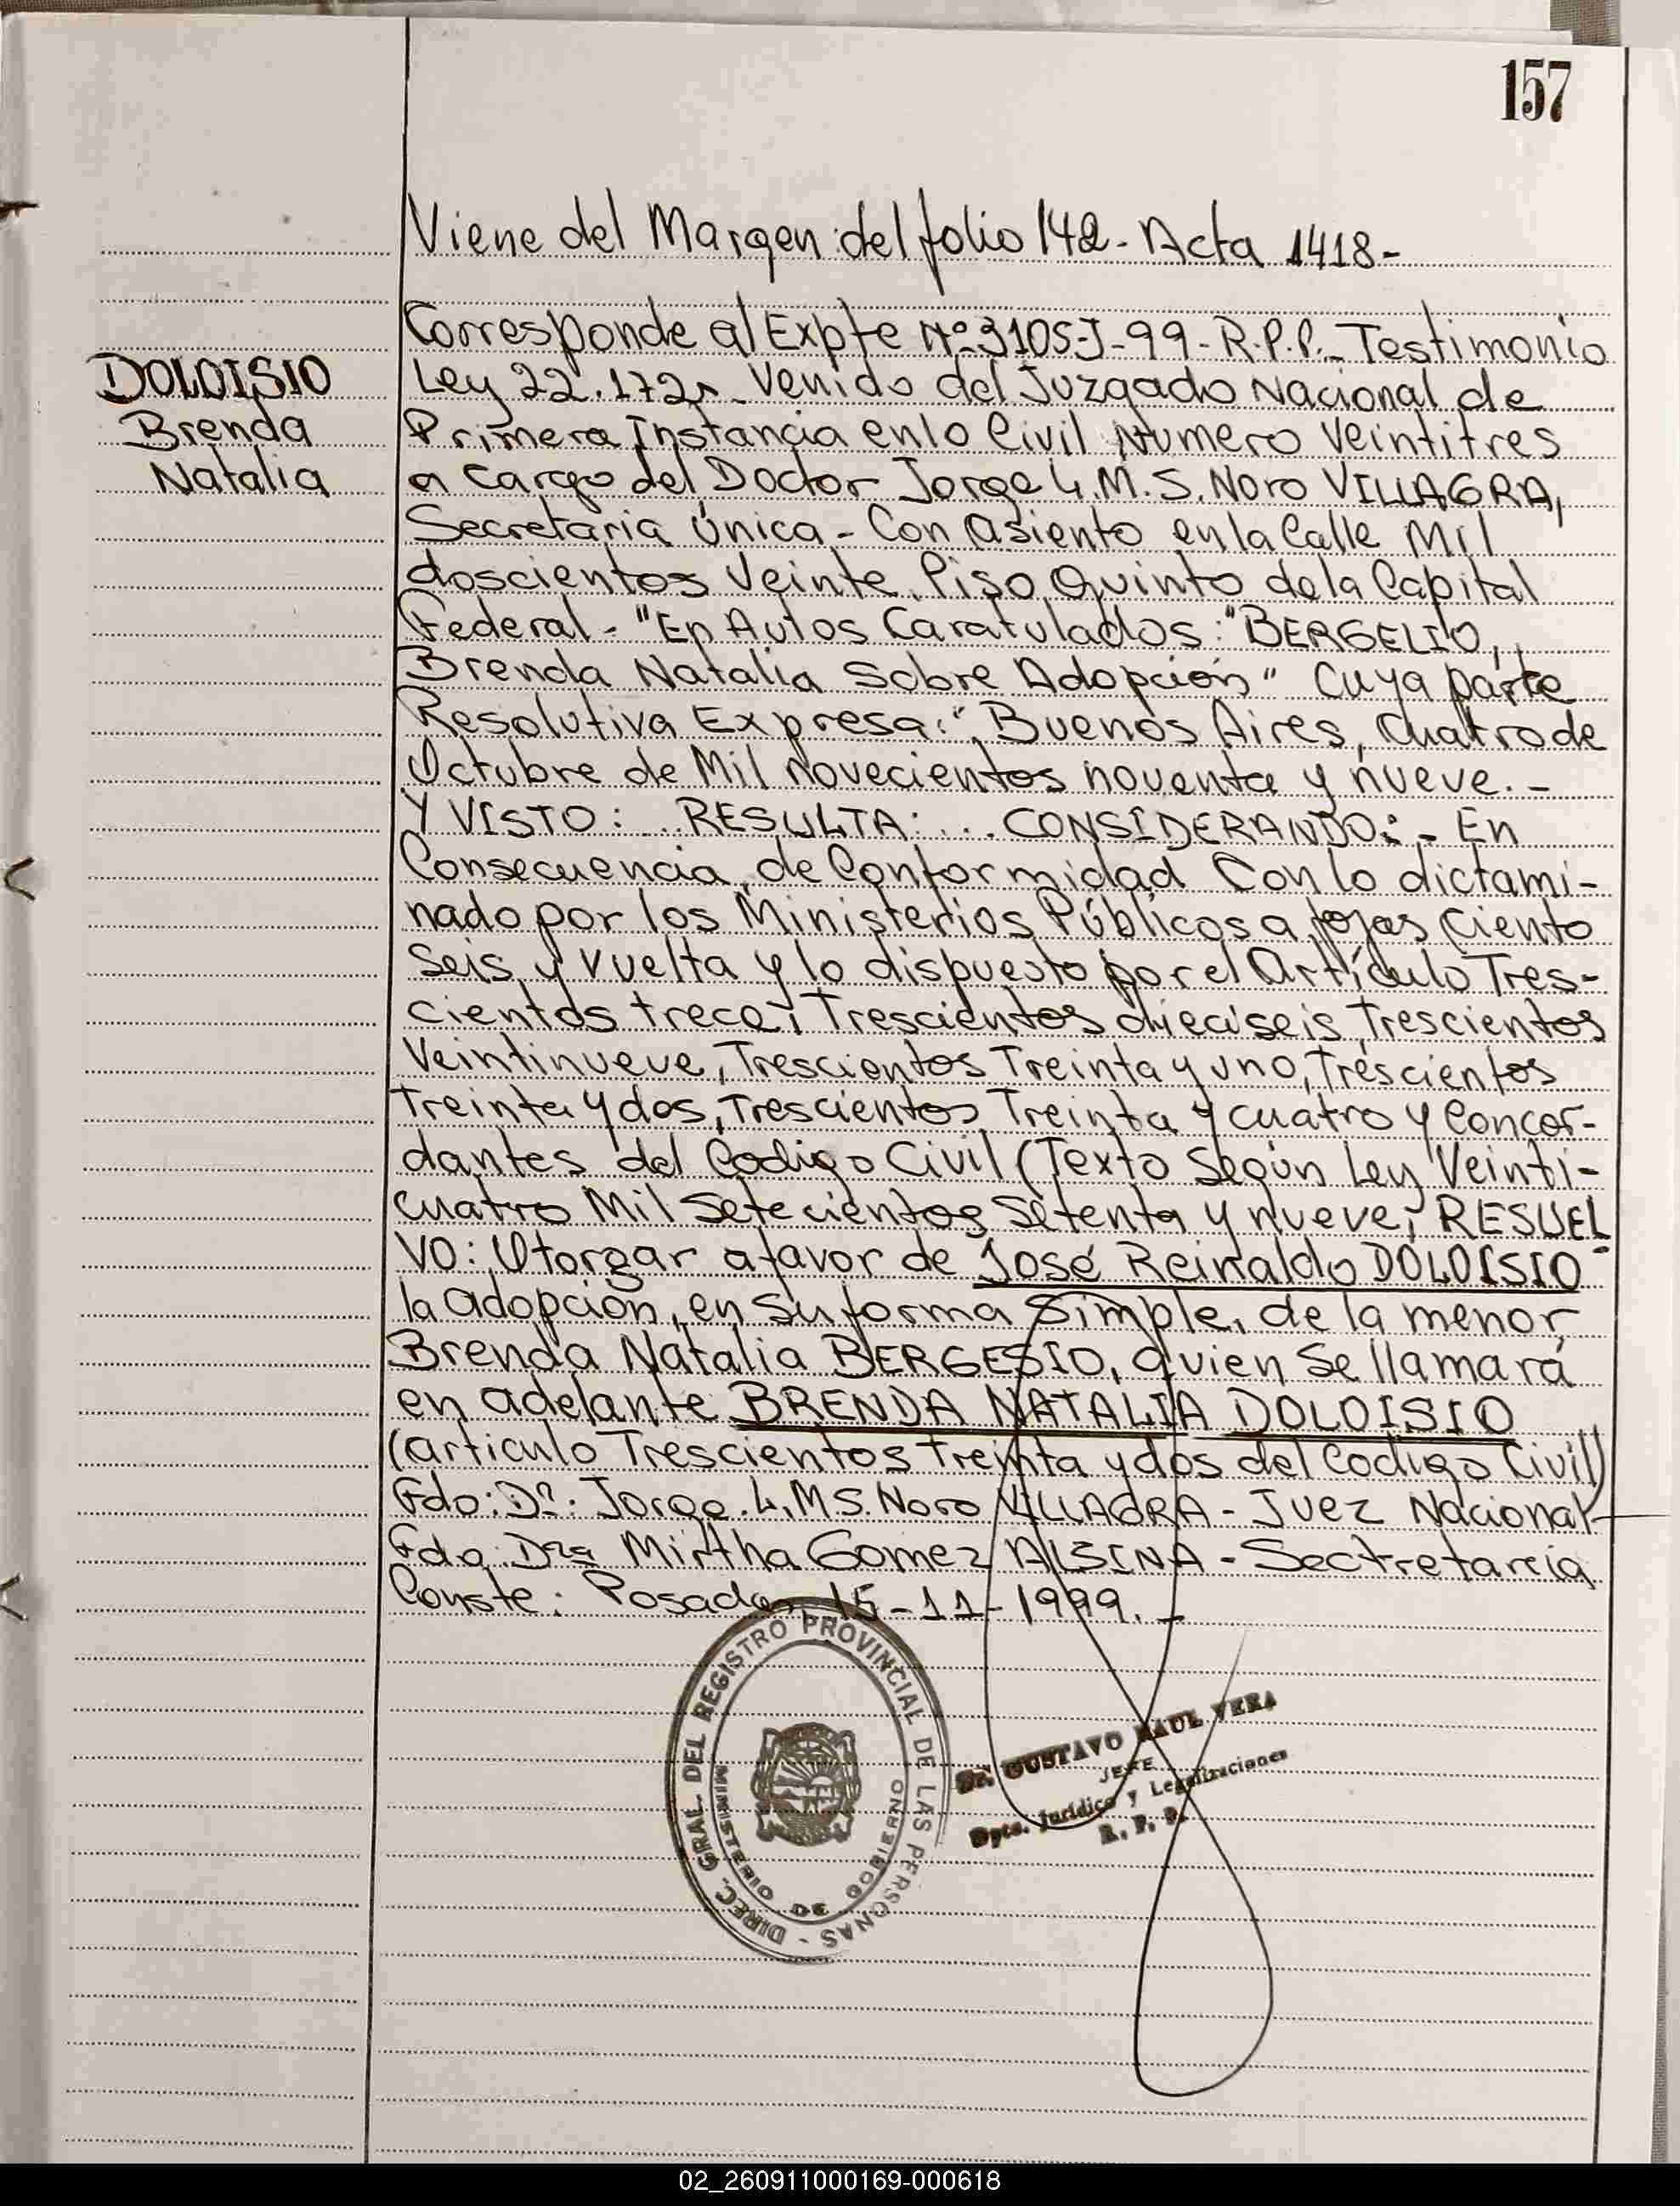 157
Viene del Margen del folio 142- Acta 1418-
Corresponde al Expte Nº3105-J-99-R.P.P.- Testimonio
DOLOISIO
Ley 22.172- Venido del Juzgado Nacional de
Brenda
Primera Instancia en lo Civil Numero Veintitres
Natalia
a cargo del Doctor Jorge L.M.S. Noro VILLAGRA,
Secretaria Única- Con asiento en la Calle Mil
doscientos Veinte, Piso Quinto de la Capital
Federal- "En Autos Caratulados: "BERGELIO,
Brenda Natalia Sobre Adopción" Cuya parte
Resolutiva Expresa: "Buenos Aires, Cuatro de
Octubre de Mil novecientos noventa y nueve.-
Y VISTO: ..RESULTA: ... CONSIDERANDO:- En
Consecuencia, de Conformidad Con lo dictami-
nado por los Ministerios Públicos a fojas Ciento
Seis y Vuelta y lo dispuesto por el Artículo Tres-
cientos trece, Trescientos dieciseis, Trescientos
Veintinueve, Trescientos Treinta y uno, Trescientos
treinta y dos, Trescientos Treinta y cuatro y Concor-
dantes del Codigo Civil (Texto Según Ley Veinti-
cuatro Mil Setecientos Setenta y nueve, RESUEL
VO: Otorgar a favor de José Reinaldo DOLOISIO-
la adopción, en su forma Simple, de la menor
Brenda Natalia BERGESIO, quien Se llamará
en adelante BRENDA NATALIA DOLOISIO
(articulo Trescientos treinta y dos del Codigo Civil)
Fdo: Dr. Jorge. L.M.S. Noro VILLAGRA - Juez Nacional
Fdo: Dra Mirtha Gomez ALSINA - Sectretaria
Conste: Posadas, 15-11-1999.-
DIREC. GRAL. DEL REGISTRO PROVINCIAL DE LAS PERSONAS -
MINISTERIO DE GOBIERNO
Dr. GUSTAVO RAUL VERA
JEFE
Dpto. Jurídico y Legalizaciones
R. P. P.
02_260911000169-000618